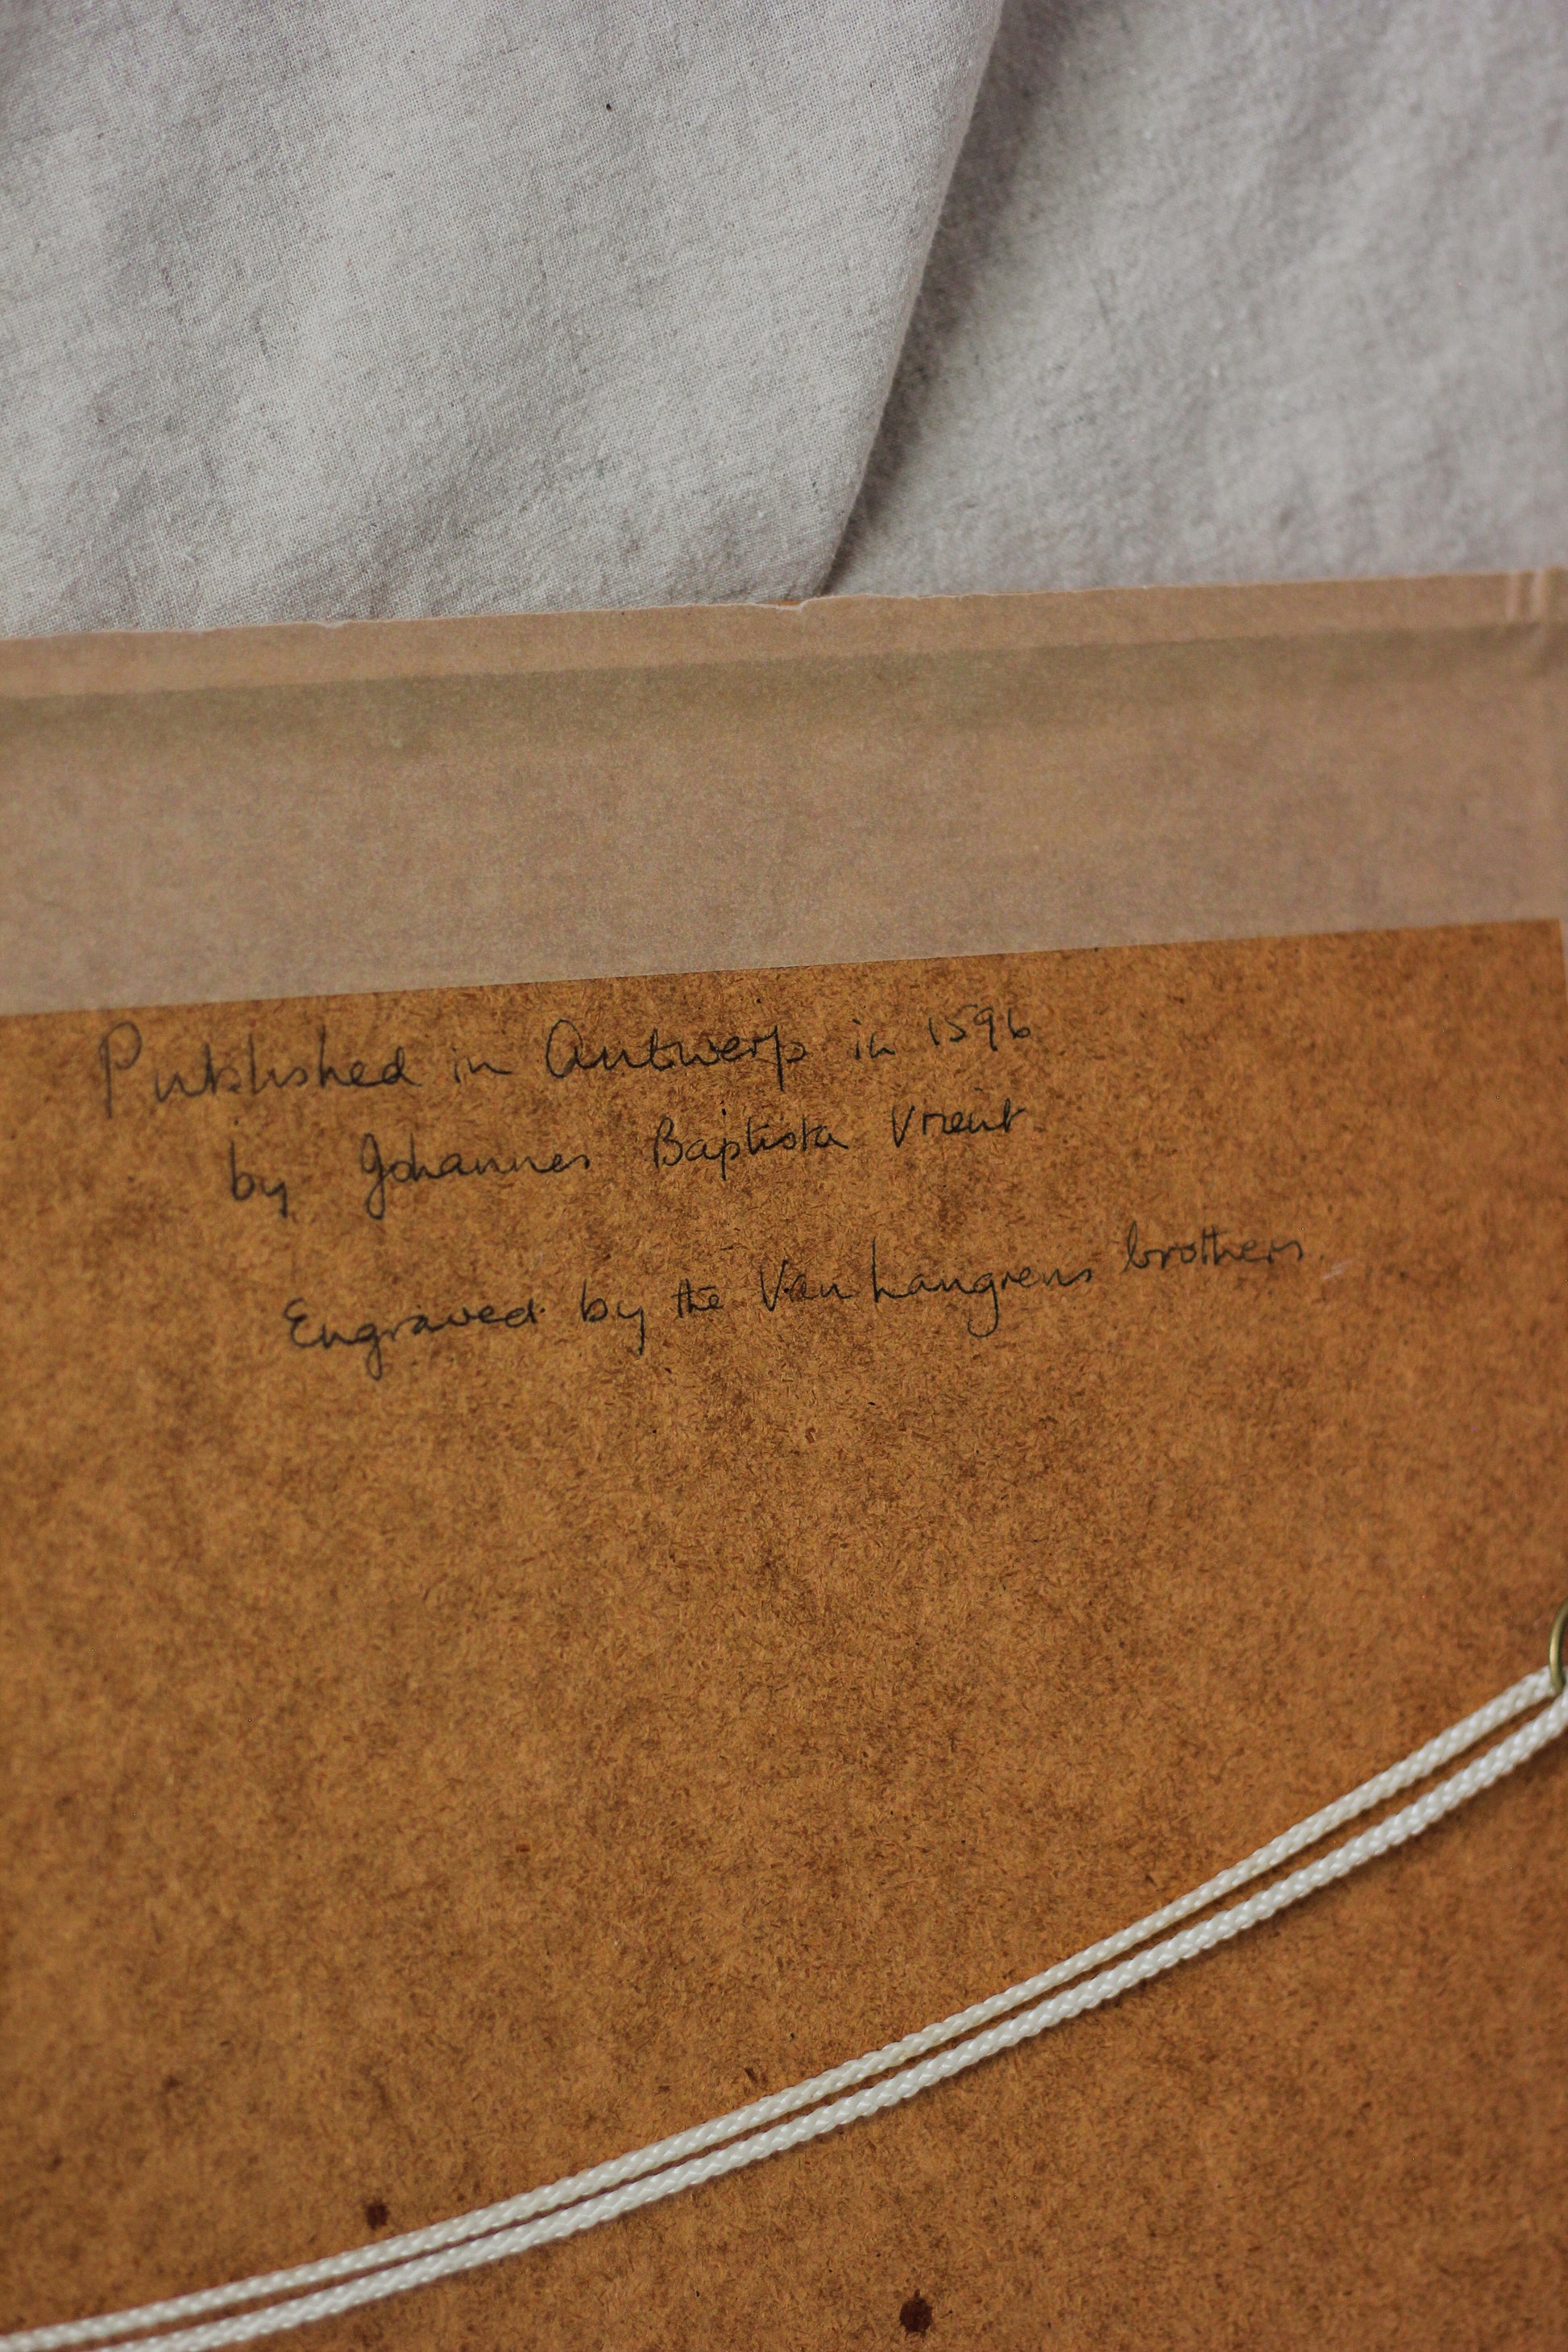 Published in Antwerp in 1596
by Johannes Baptista Vrient
Engraved by the Van Langrens brothers.